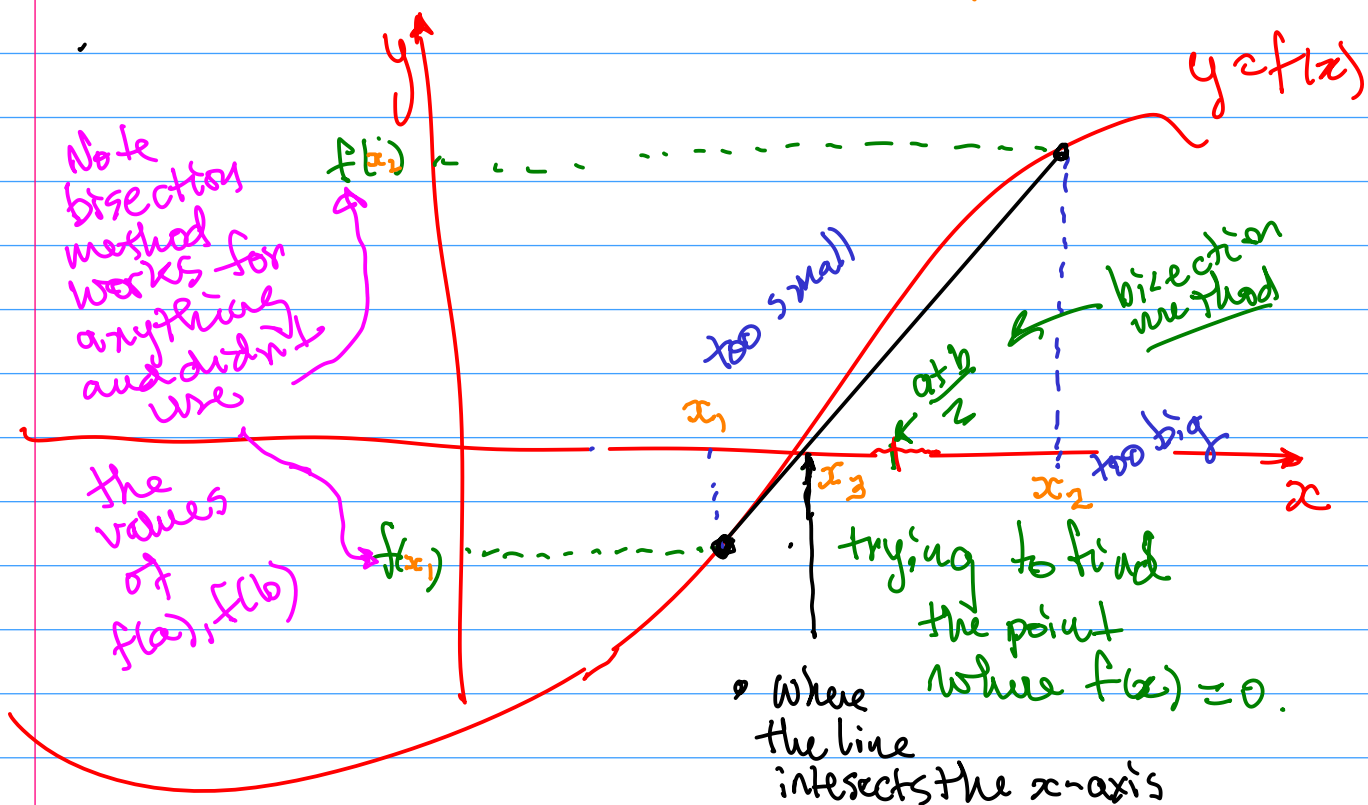 y
y=f(x)
Note
bisection
method
works for
anything
and didn't
use
the
values
of
f(a), f(b)
f(x₂)
f(x₁)
too small
x₁
x₃
a+b
2
bisection
method
x₂
too big
x
trying to find
the point
where f(x)=0.
• Where
the line
intesects the x-axis